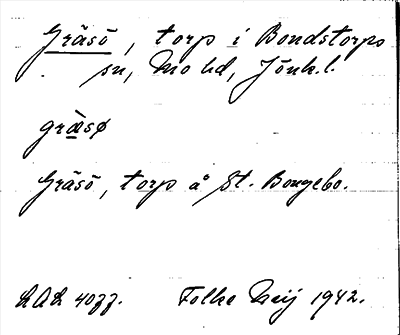 Gräsö, torp i Bondstorps
sn, Mo hd, Jönk.l.
græ̀sø
Gräsö, torp å St. Bongebo.
LAL 4077. Folke Neij 1942.